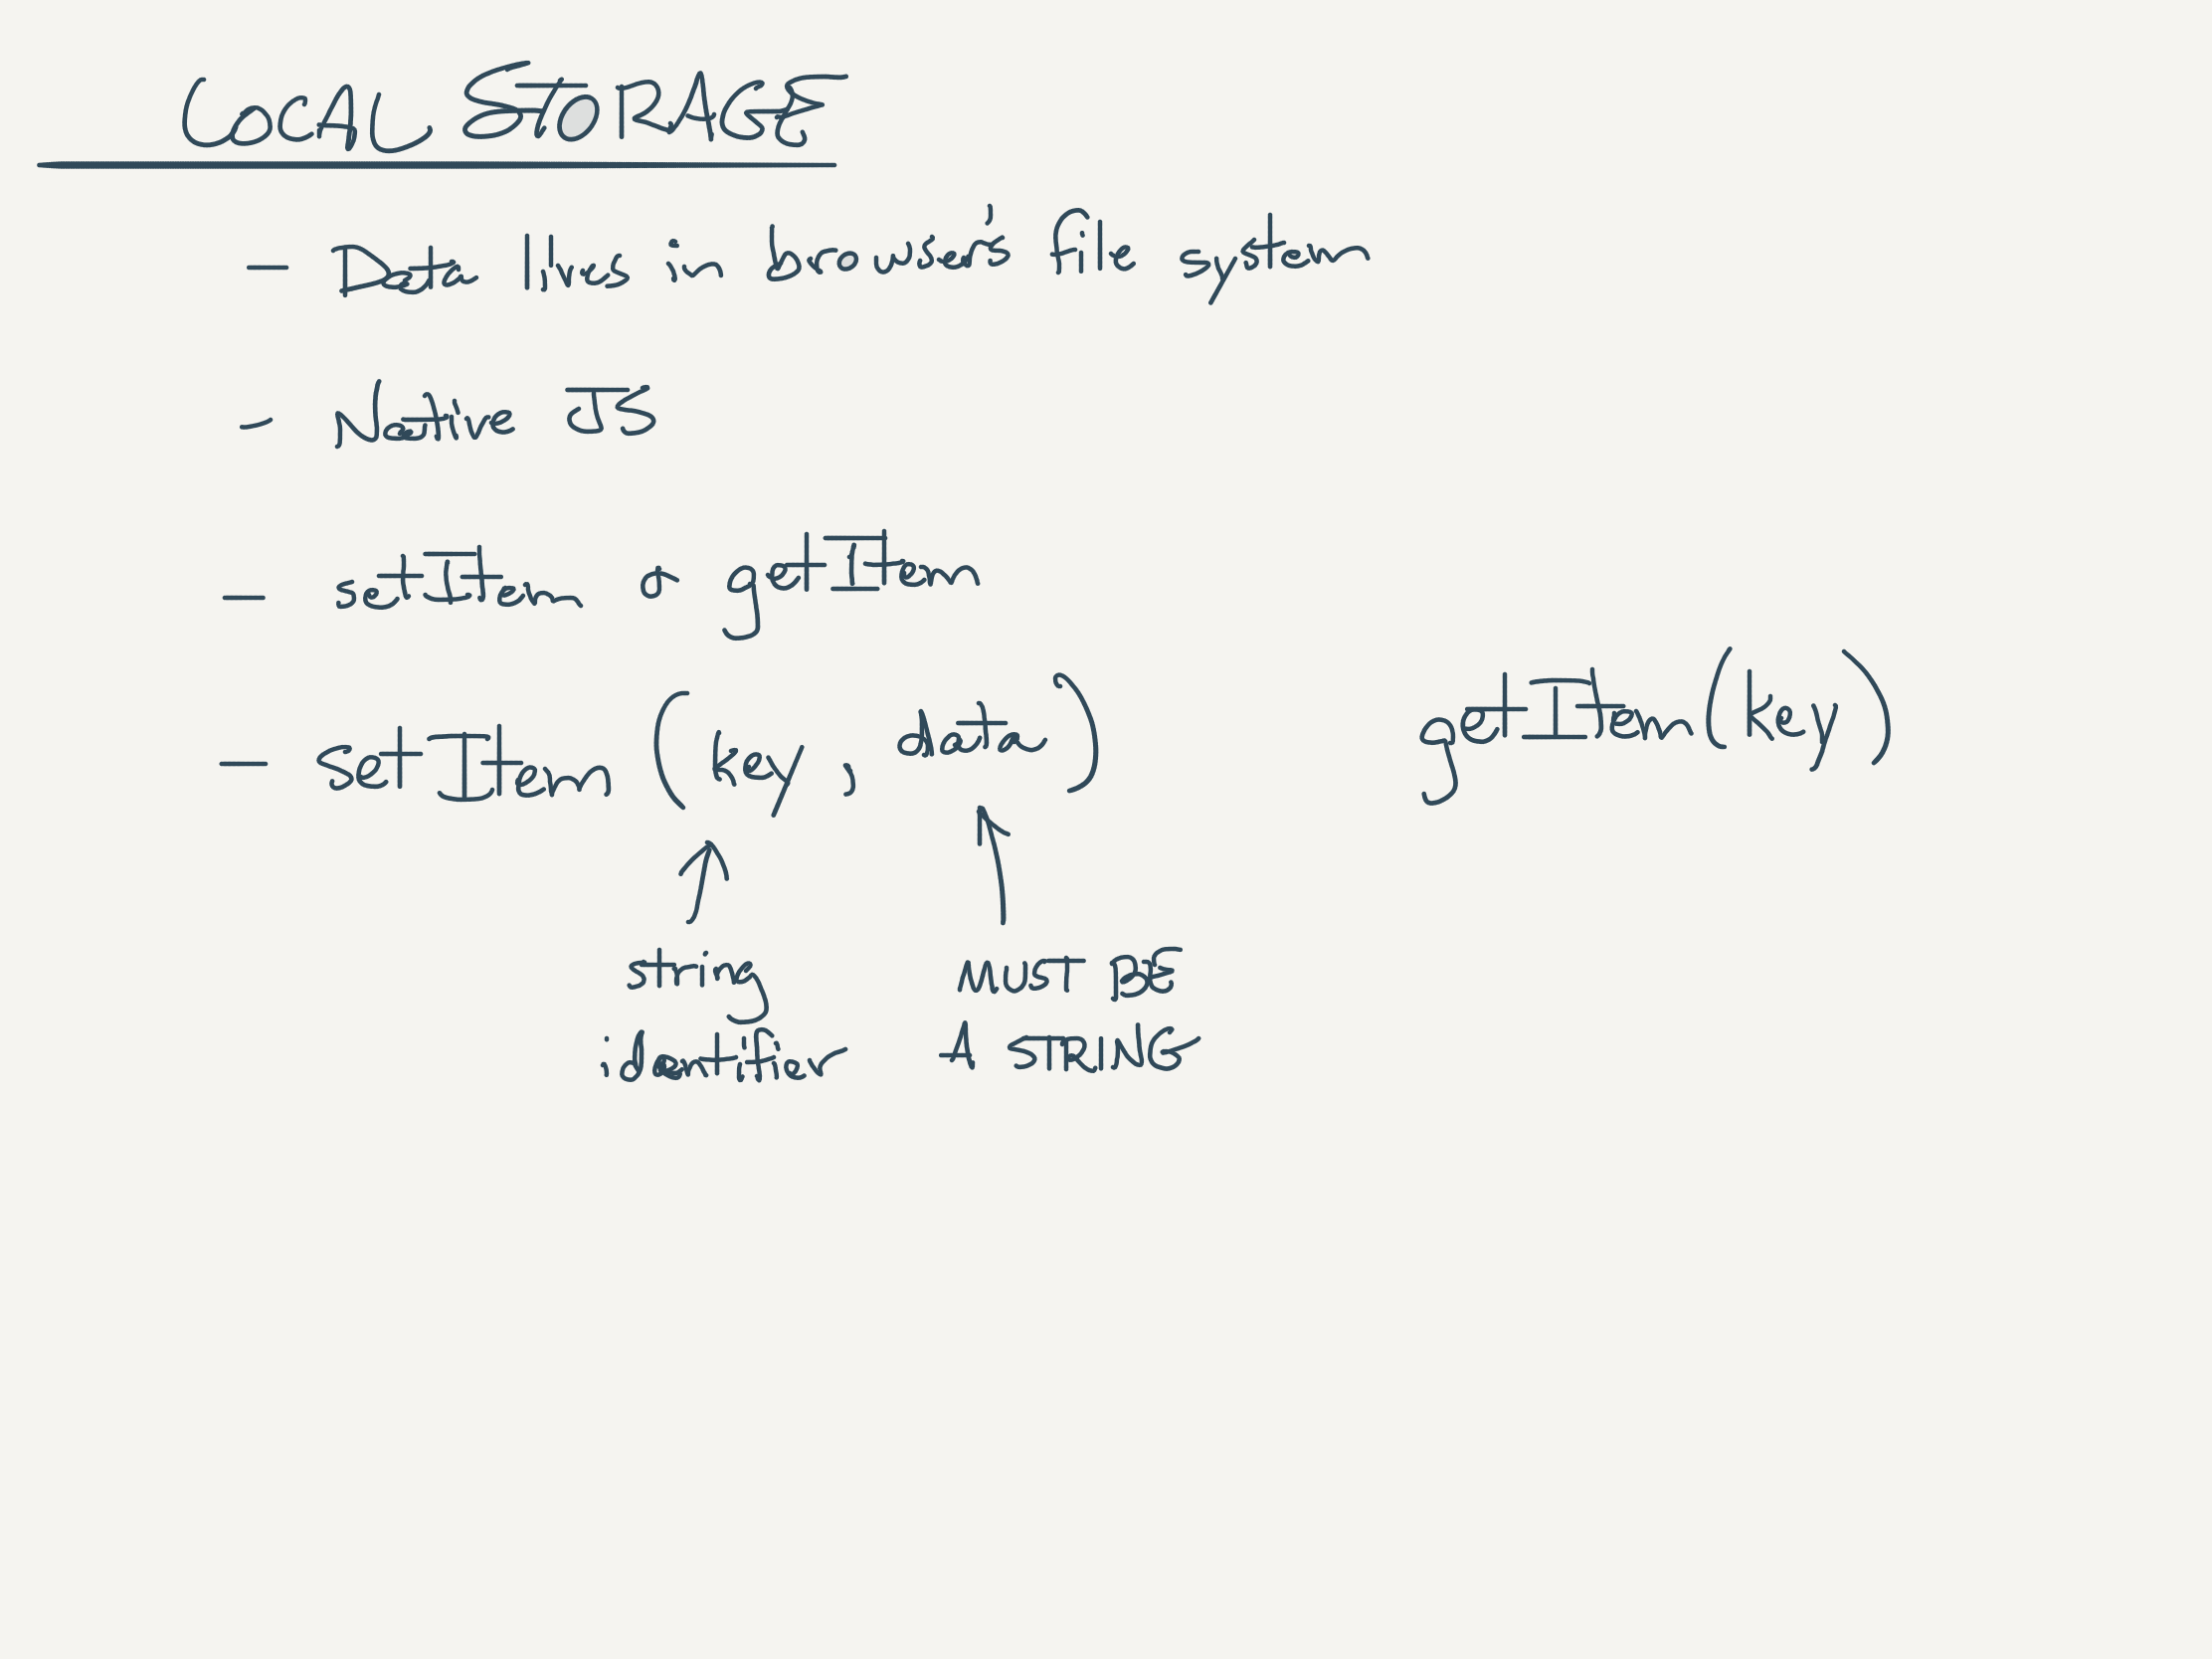 LOCAL STORAGE
- Data lives in browser's file system
- Native JS
- setItem & getItem
- setItem (key, data)
getItem(key)
string
identifier
MUST BE
A STRING